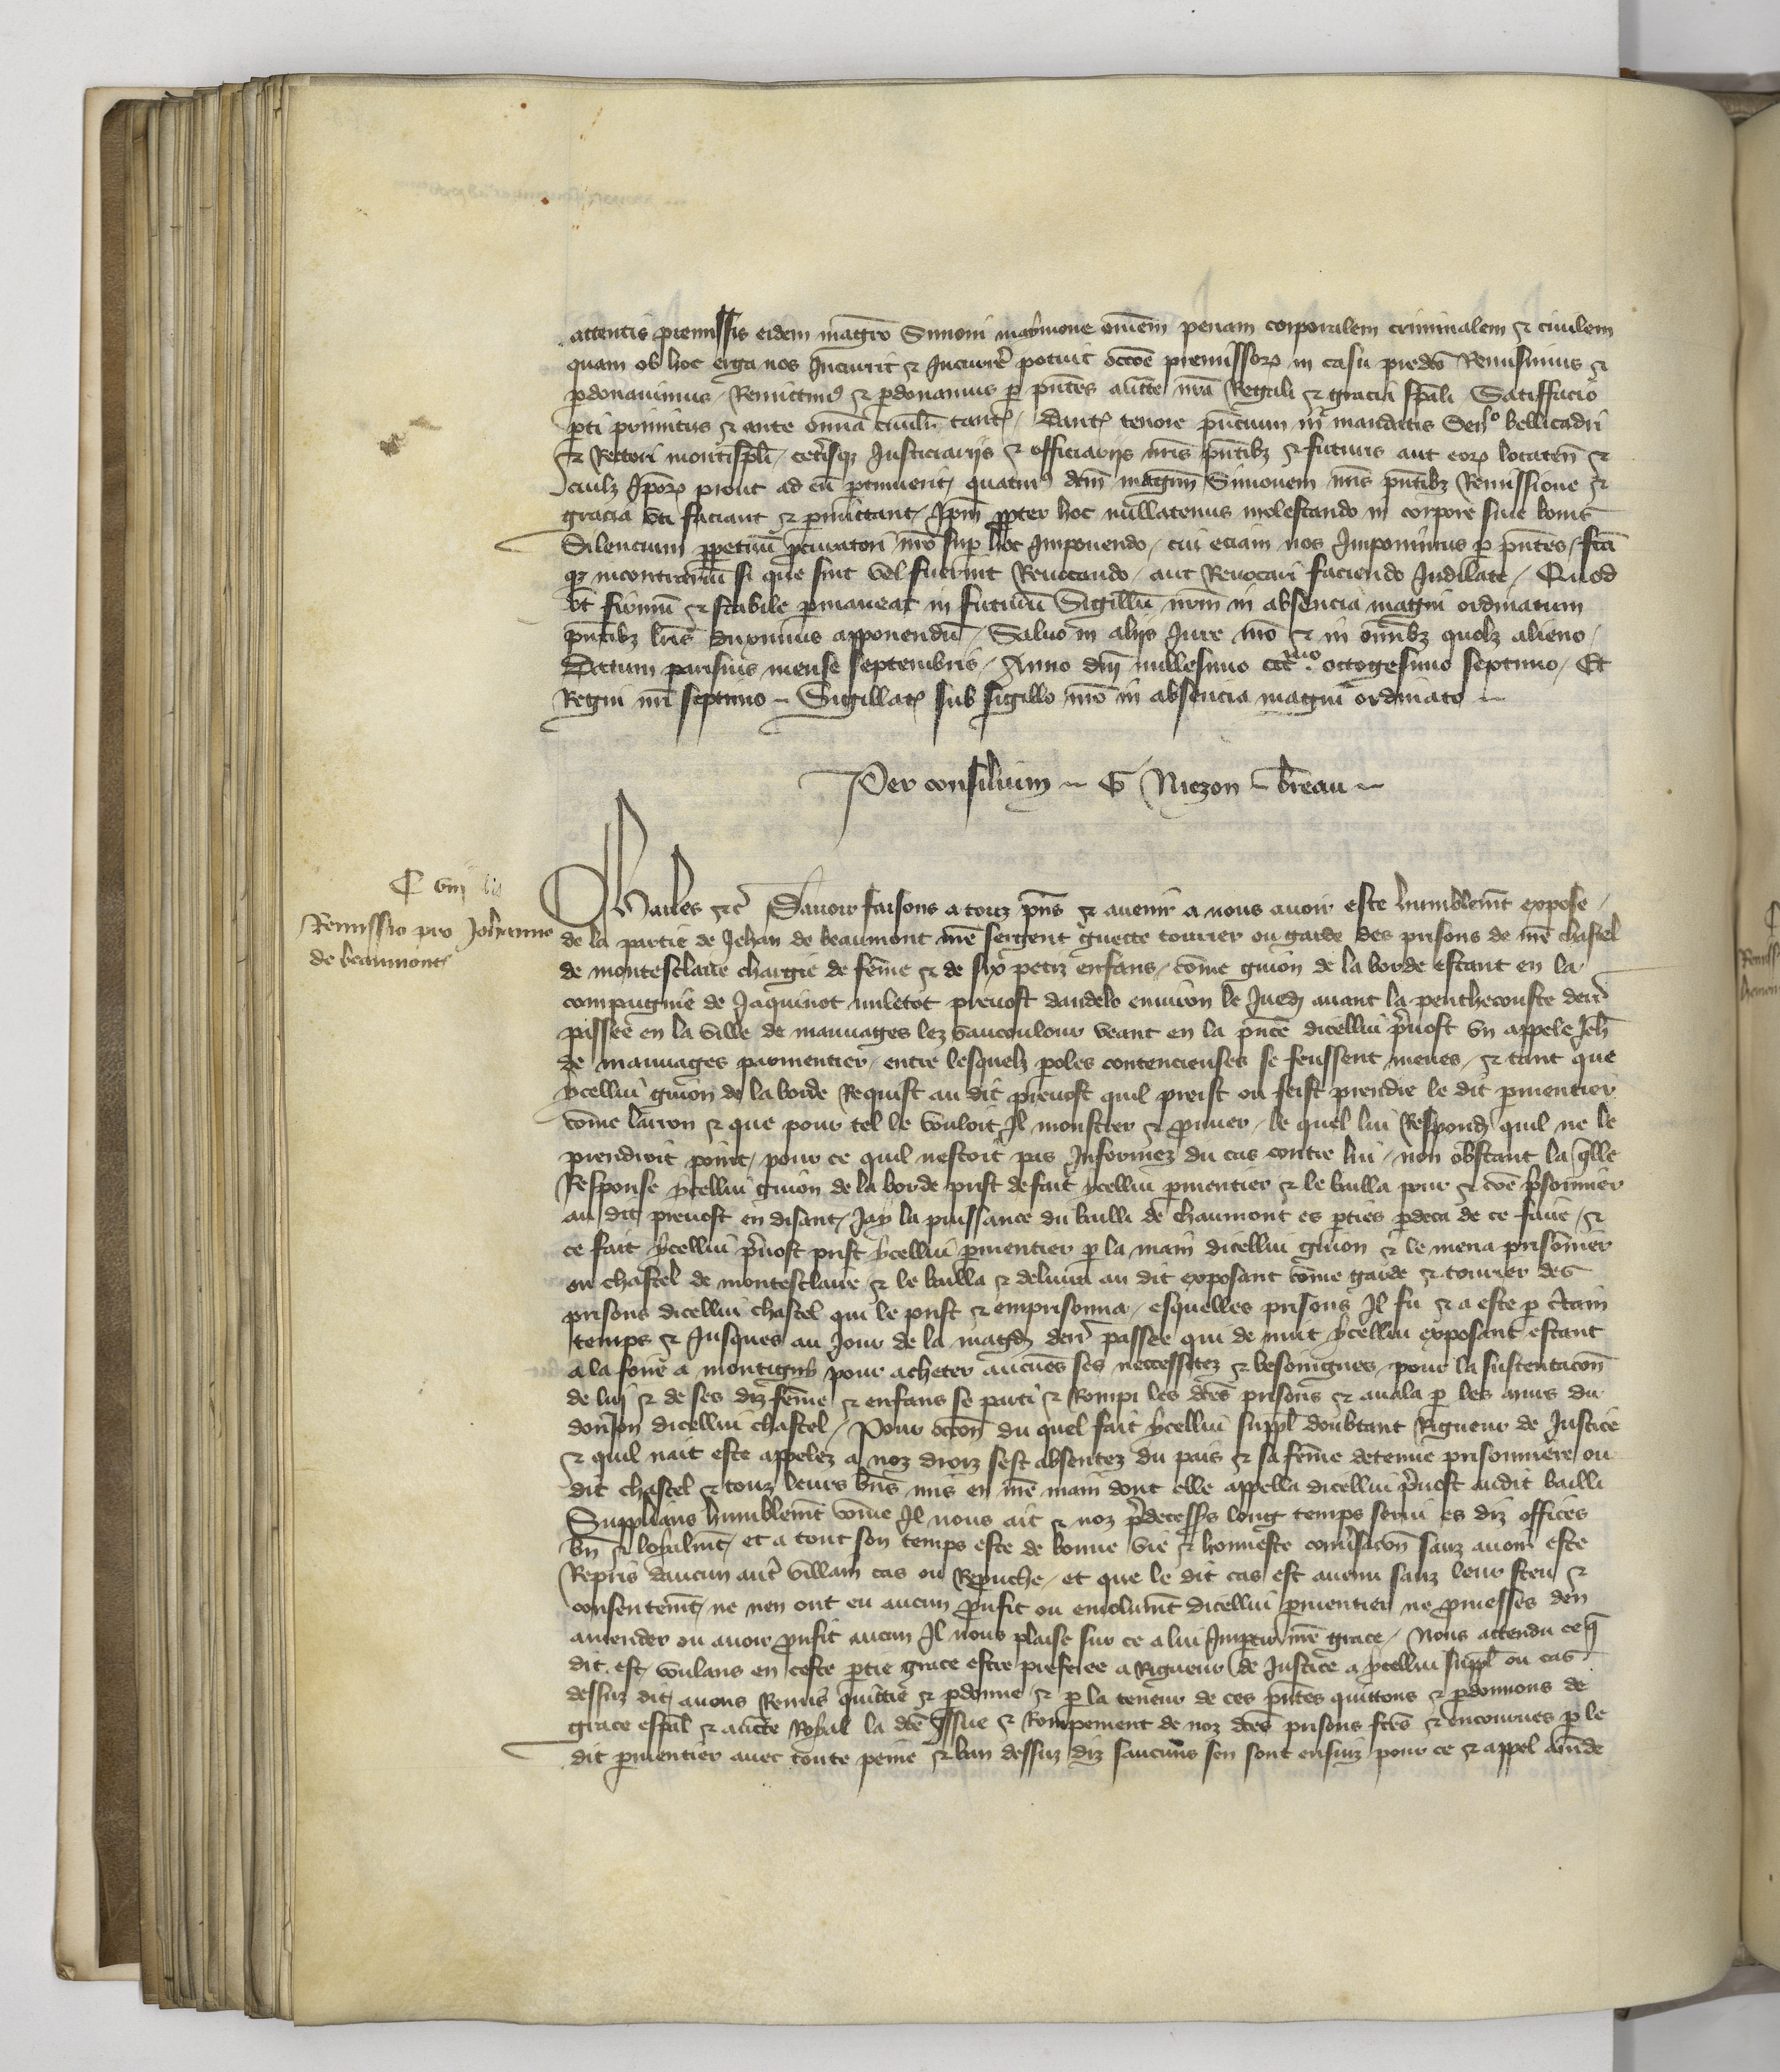 attentis premissis eidem magro Simoni maymone omem penam corporalem criminalem & ciuilem
quam ob hoc erga nos Incurrit & Incurre potuit occoe premissor in casu predco Remisimus &
pdonauimus Remittim9 & pdonamus p pntes aucte nra Regali & gracia spali Satisfacio
pti primitus & ante omnia ciuilr tant / Dant tenore pncium in mandatis Sen lo bellicadri
& Rectori montispli / ceterisq Justiciariis & officiariis nris pntibz & futuris aut eor locaten &
cuilz Ipor prout ad eu ptinuerit quatin9 dcm magrm Simonem nris pntibz Remissione &
gracia vti faciant & pmittant Ipm ppter hoc nullatenus molestando in corpore siue bonis
Silencium ppetuu pcuratori nro sup hoc Imponendo / cui eciam nos Imponimus p pntes / fca
qz incontrariu si que sint vel fuerint Reuocando / aut Reuocari faciendo Indilate / Quod
vt firmu & stabile pmaneat in futuru Sigillu nrm in absencia magni ordinatum
pntibz lris duximus apponendu / Saluo in aliis Jure nro & in omibz quolz alieno /
Datum parisius mense septembris / Anno dni millesimo ccc mo octogesimo septimo / Et
Regni nri septimo ~ Sigillat sub sigillo nro in absencia magni ordinato ~
Per consilium ~ G Niczon ~ breau ~
C viij bis
Remissio pro Johanne
de beaumont
Charles &c Sauoir faisons a touz pns & auenir a nous auoir este humblemt expose /
de la partie de Jehan de beaumont nre sergent guette tourier ou garde des prisons de nre chastel
de montesclaire chargie de feme & de six petiz enfans / come guion de la borde estant en la
compaignie de Jaquinot miletot preuost dandelo enuiron le Juedi auant la penthecouste dern
passee en la ville de mauuages lez vaucoulour veant en la pnce dicellui preuost vn appele Jeh
de mauuages parmentier / entre lesquelz poles contencieuses se feussent meues / & tant que
ycellui guion de la borde Requist au dit preuost quil preist ou feist prendre le dit pmentier
come larron & que pour tel le vouloit Il monstrer & prouuer / le quel lui Respondi quil ne le
prendroit point / pour ce quil nestoit pas Informez du cas contre lui / non obstant la qlle
Response ycellui guion de la borde prist de fait ycellui pmentier & le bailla pour & coe prisonnier
au dit preuost en disant / Jay la puissance du bailli de chaumont es pties pdeca de ce faire / &
ce fait ycellui preuost prist ycellui pmentier p la main dicellui guion & le mena prisonnier
ou chastel de montesclaire & le bailla & deliura au dit exposant come garde & tourier des
prisons dicellui chastel qui le prist & emprisonna / esquelles prisons Il fu & a este p certain
temps & Jusques au Jour de la magd dern passee qui de nuit ycellui exposant estant
a la foire a montigny pour acheter aucues ses neccessitez & besoingnes / pour la sustentacon
de lui & de ses diz feme & enfans se parti & Rompi les dces prisons & auala p les murs du
donJon dicellui chastel / Pour occon du quel fait ycellui suppl doubtant Rigueur de Justice
& quil nait este appelez a noz droiz sest absentez du pais & sa feme detenue prisonniere ou
dit chastel & touz leurs bns mis en nre main dont elle appella dicellui preuost audit bailli
Supplians humblemt come Il nous ait & noz predecesss long temps serui es diz offices
bn & loyalmt / et a tout son temps este de bonne vie & honneste conusacon sanz auoir este
Repris daucun autre villain cas ou Reprouche / et que le dit cas est auenu sanz leur sceu &
consentemt / ne nen ont eu aucun proufit ou emolumt dicellui pmentier ne promesses den
amender ou auoir proufit aucun Il nous plaise sur ce a lui Impartir nre grace / Nous attendu ce q
dit est / voulans en ceste ptie grace estre preferee a Rigueur de Justice a ycellui suppl ou cas
dessuz dit auons Remis quittie & pdonne & p la teneur de ces pntes quittons & pdonnons de
grace espal & aucte Royal la dce yssue & Rompement de noz dces prisons fces & encourues p le
dit pmentier auec toute peine & ban dessuz diz saucuns sen sont ensuiz pour ce & appel amde